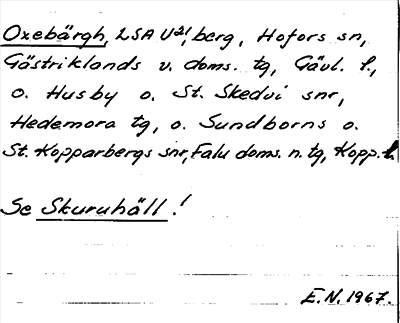 Oxebärgh, LSA U21, berg, Hofors sn,
Gästriklands v. doms. tg, Gävl. l.,
o. Husby o. St. Skedvi snr,
Hedemora tg, o. Sundborns o.
St. Kopparbergs snr, Falu doms. n. tg, Kopp. l.
Se Skuruhäll!
E.N. 1967.